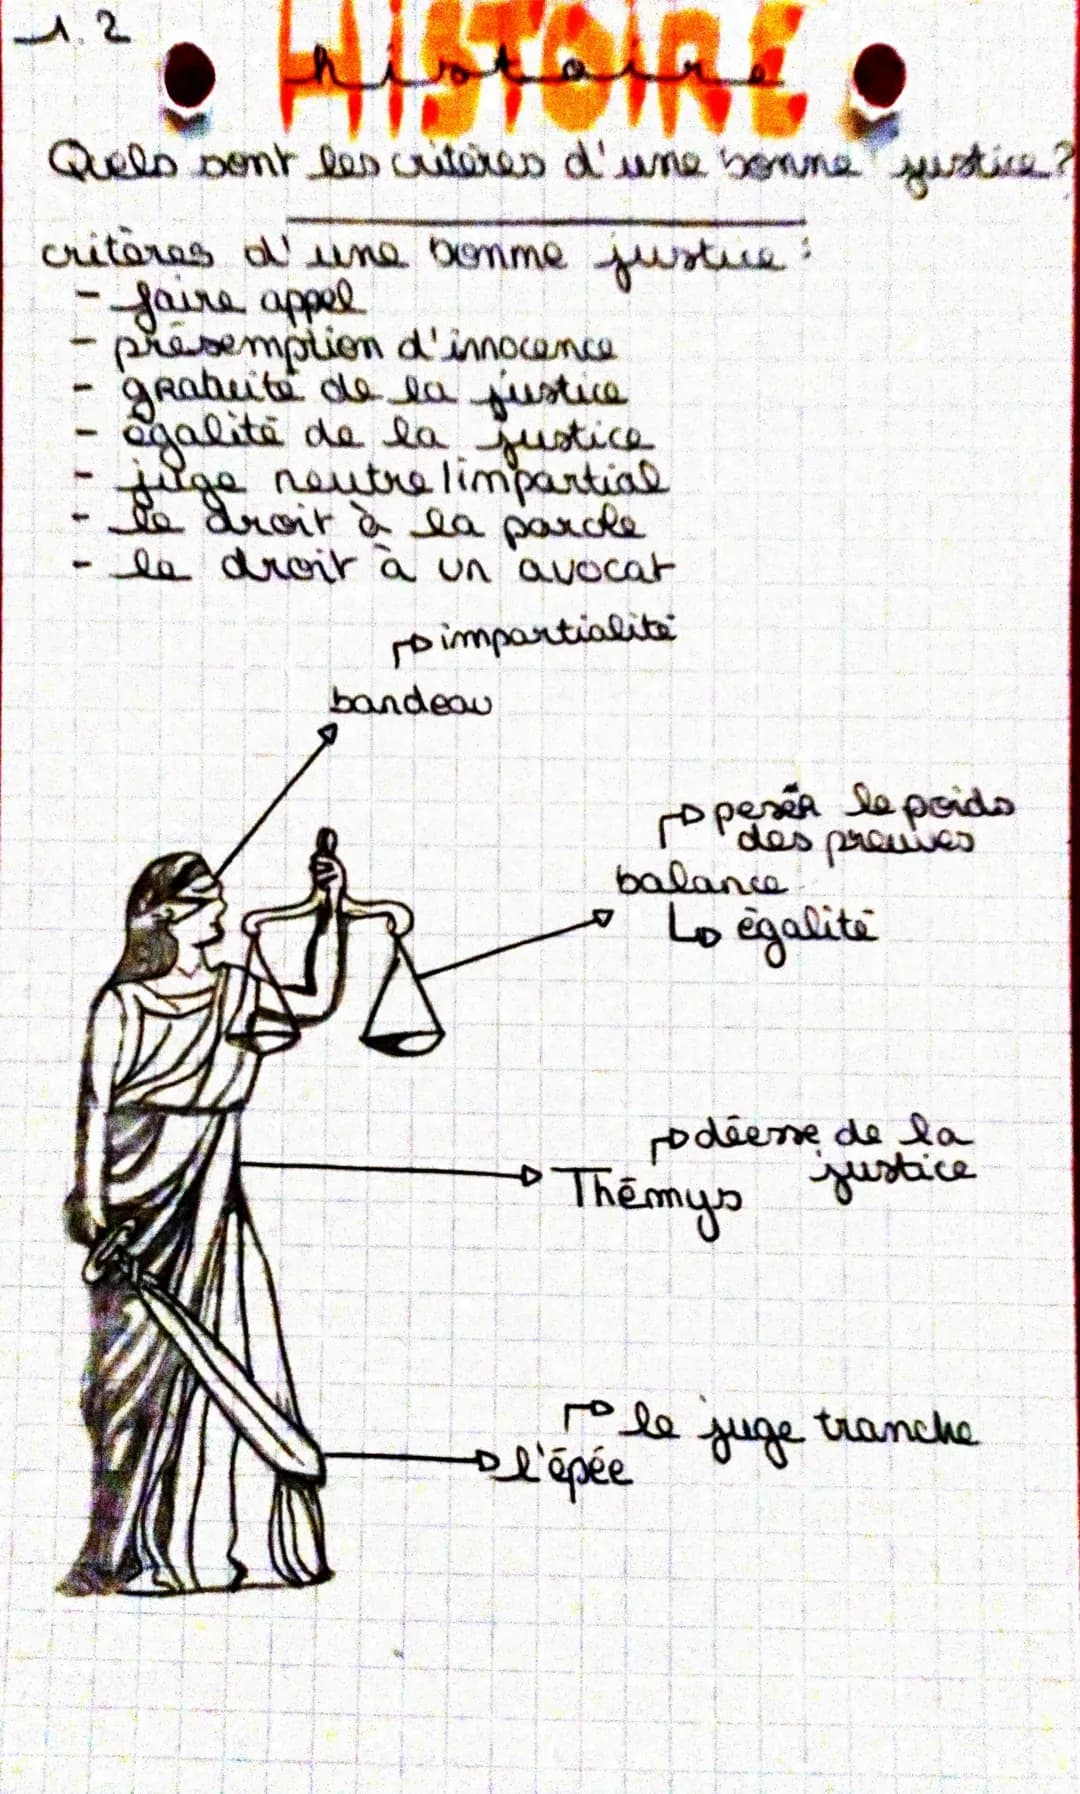 1.2
HISTOIRE
histoire
Quels sont les critères d'une bonne justice?
critères d'une bonne justice :
- faire appel
- présemption d'innocence
- gratuité de la justice
- égalité de la justice
- juge neutre/impartial
- le droit à la parole
- le droit à un avocat
impartialité
bandeau
pesér le poids
des preuves
balance
égalité
déesse de la
justice
Thémys
le juge tranche
l'épée